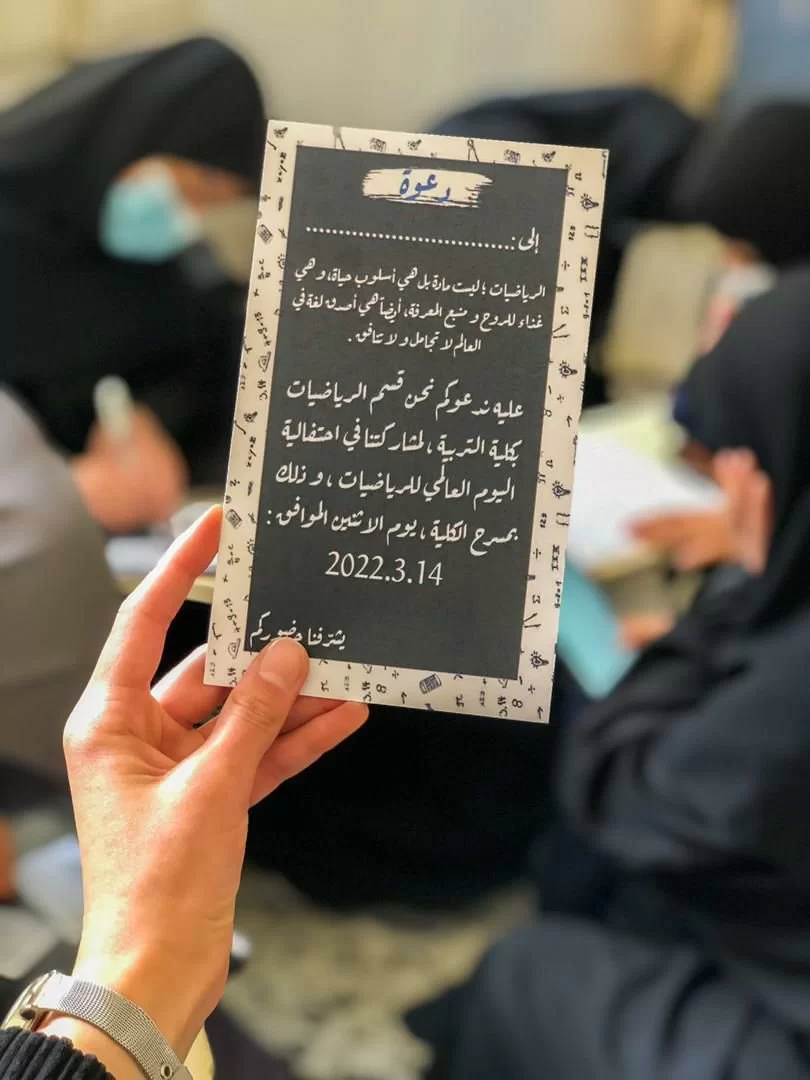 دعوة
إلى :..............................
الرياضيات ؛ ليست مادة بل هي أسلوب حياة، و هي
غذاء للروح و منبع المعرفة، أيضاً هي أصدق لغة في
العالم لا تجامل و لا تنافق .
عليه ندعوكم نحن قسم الرياضيات
بكلية التربية ، لمشاركتنا في احتفالية
اليوم العالمي للرياضيات ، و ذلك
بمسرح الكلية ، يوم الاثنين الموافق :
2022.3.14
يشرفنا حضوركم